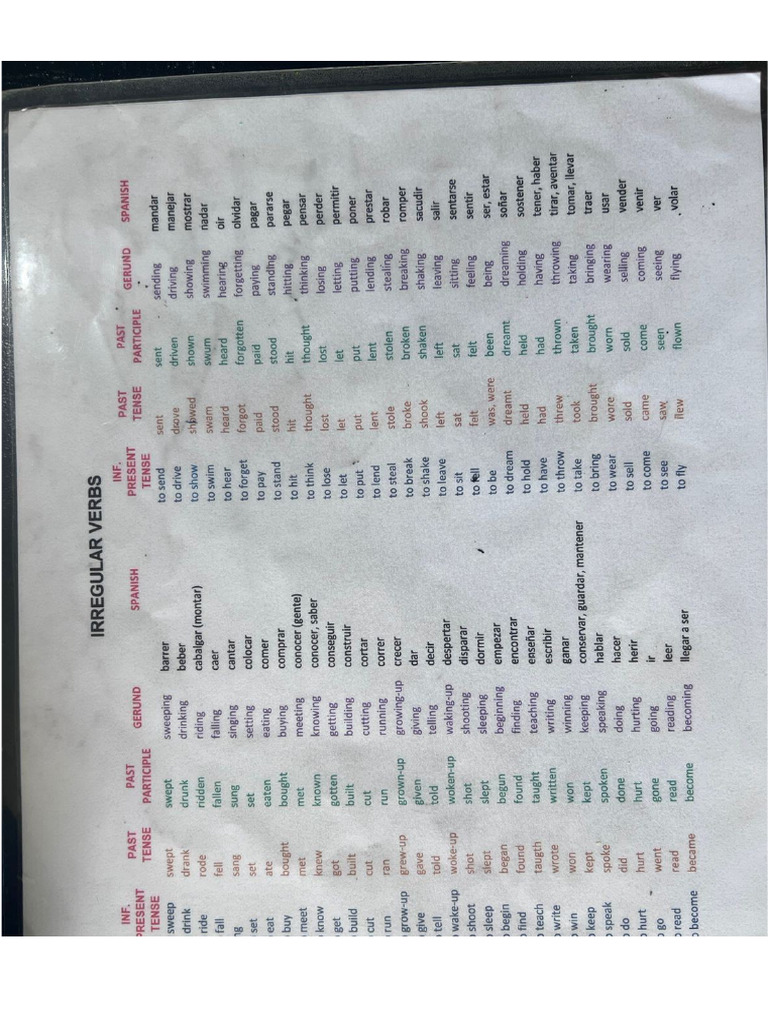 IRREGULAR VERBS
INF. PRESENT TENSE PAST TENSE PAST PARTICIPLE GERUND SPANISH
sweep swept swept sweeping barrer
drink drank drunk drinking beber
ride rode ridden riding cabalgar (montar)
fall fell fallen falling caer
sang sung singing cantar
set set set setting colocar
eat ate eaten eating comer
buy bought bought buying comprar
meet met met meeting conocer (gente)
know knew known knowing conocer, saber
get got gotten getting conseguir
build built built building construir
cut cut cut cutting cortar
run ran run running correr
grow-up grew-up grown-up growing-up crecer
give gave given giving dar
tell told told telling decir
wake-up woke-up woken-up waking-up despertar
shoot shot shot shooting disparar
sleep slept slept sleeping dormir
begin began begun beginning empezar
find found found finding encontrar
teach taugth taught teaching enseñar
write wrote written writing escribir
win won won winning ganar
keep kept kept keeping conservar, guardar, mantener
speak spoke spoken speaking hablar
do did done doing hacer
hurt hurt hurt hurting herir
go went gone going ir
read read read reading leer
become became become becoming llegar a ser
INF. PRESENT TENSE PAST TENSE PAST PARTICIPLE GERUND SPANISH
to send sent sent sending mandar
to drive drove driven driving manejar
to show showed shown showing mostrar
to swim swam swum swimming nadar
to hear heard heard hearing oir
to forget forgot forgotten forgetting olvidar
to pay paid paid paying pagar
to stand stood stood standing pararse
to hit hit hit hitting pegar
to think thought thought thinking pensar
to lose lost lost losing perder
to let let let letting permitir
to put put put putting poner
to lend lent lent lending prestar
to steal stole stolen stealing robar
to break broke broken breaking romper
to shake shook shaken shaking sacudir
to leave left left leaving salir
to sit sat sat sitting sentarse
to fell felt felt feeling sentir
to be was, were been being ser, estar
to dream dreamt dreamt dreaming soñar
to hold held held holding sostener
to have had had having tener, haber
to throw threw thrown throwing tirar, aventar
to take took taken taking tomar, llevar
to bring brought brought bringing traer
to wear wore worn wearing usar
to sell sold sold selling vender
to come came come coming venir
to see saw seen seeing ver
to fly flew flown flying volar